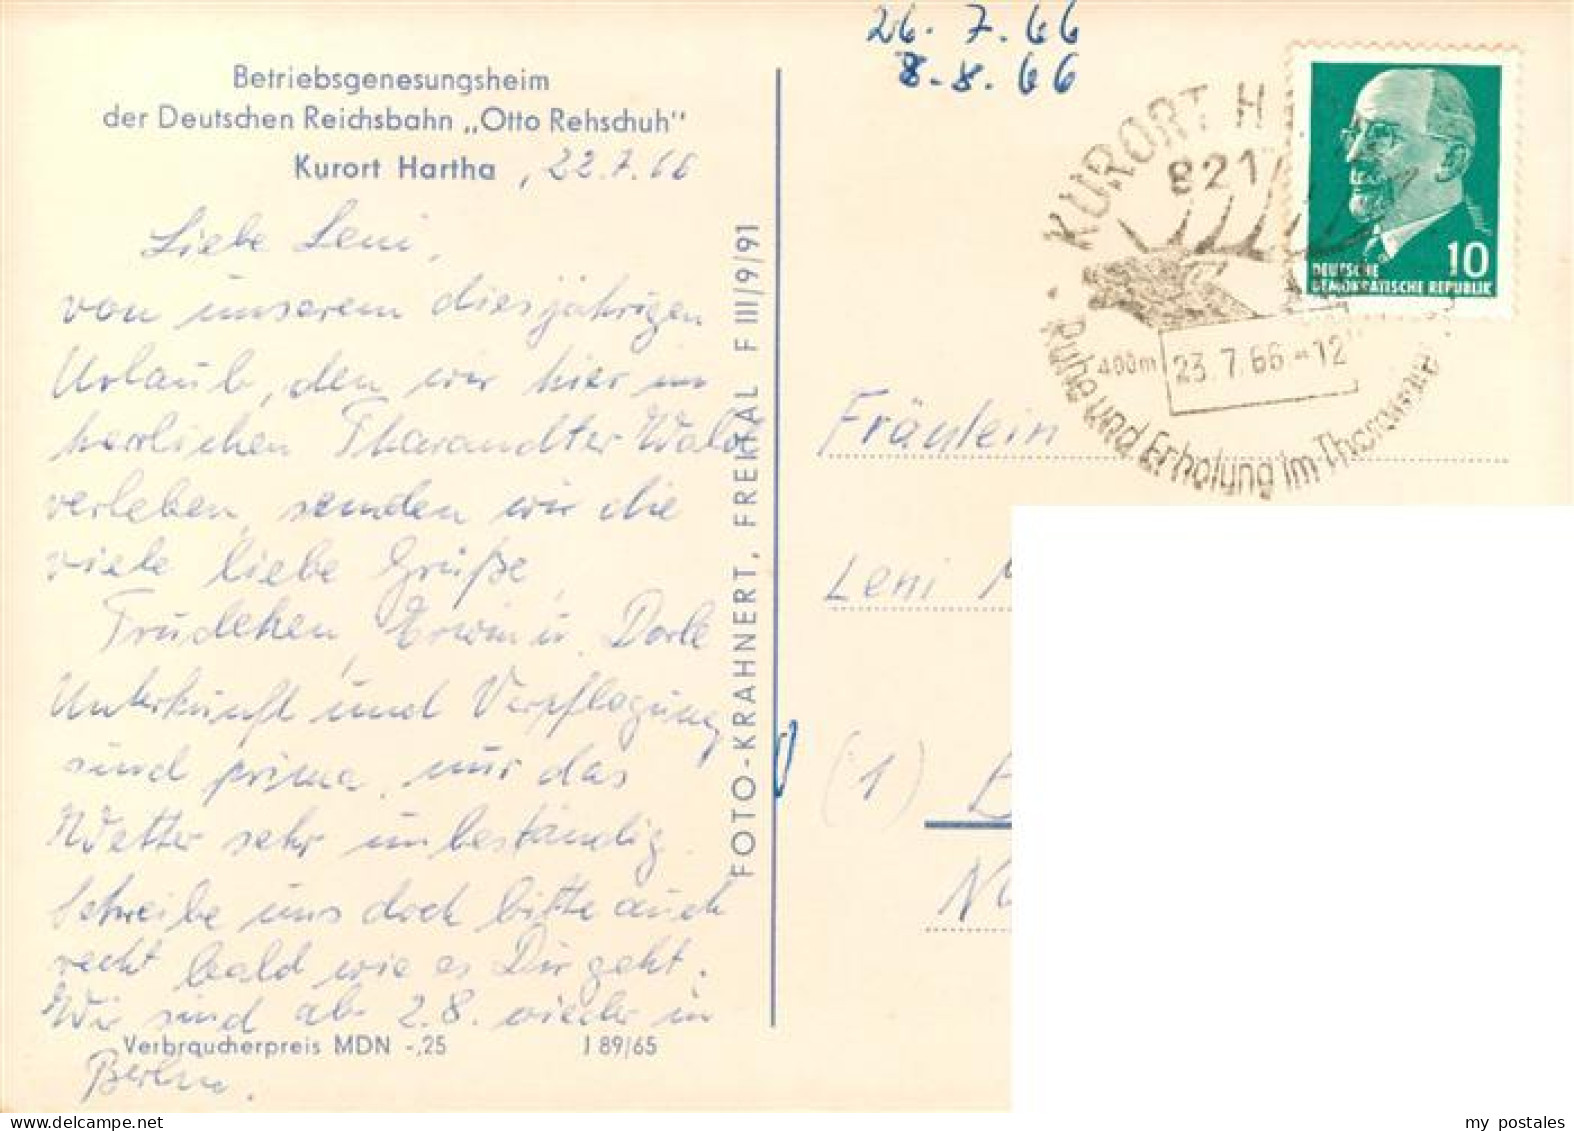 Betriebsgenesungsheim
der Deutschen Reichsbahn „Otto Rehschuh"
Kurort Hartha , 22.7.66
Liebe Leni,
von unserem diesjährigen
Urlaub, den wir hier im
herrlichen Tharandter Wald
verleben, senden wir die
viele liebe Grüße,
Trudchen, Erwin u. Dorle
Unterkunft und Verpflegung
sind prima, nur das
Wetter sehr unbeständig.
Schreibe uns doch bitte auch
recht bald wie es Dir geht.
Wir sind ab 2.8. wieder in
Verbraucherpreis MDN -,25 J 89/65
Berlin.
FOTO-KRAHNERT, FREITAL F III/9/91
26. 7. 66
8. 8. 66
KURORT H
821
400m
23.7.66.-12
Ruhe und Erholung im
10
DEUTSCHE
DEMOKRATISCHE REPUBLIK
Fräulein
Leni
(1) B
my postales